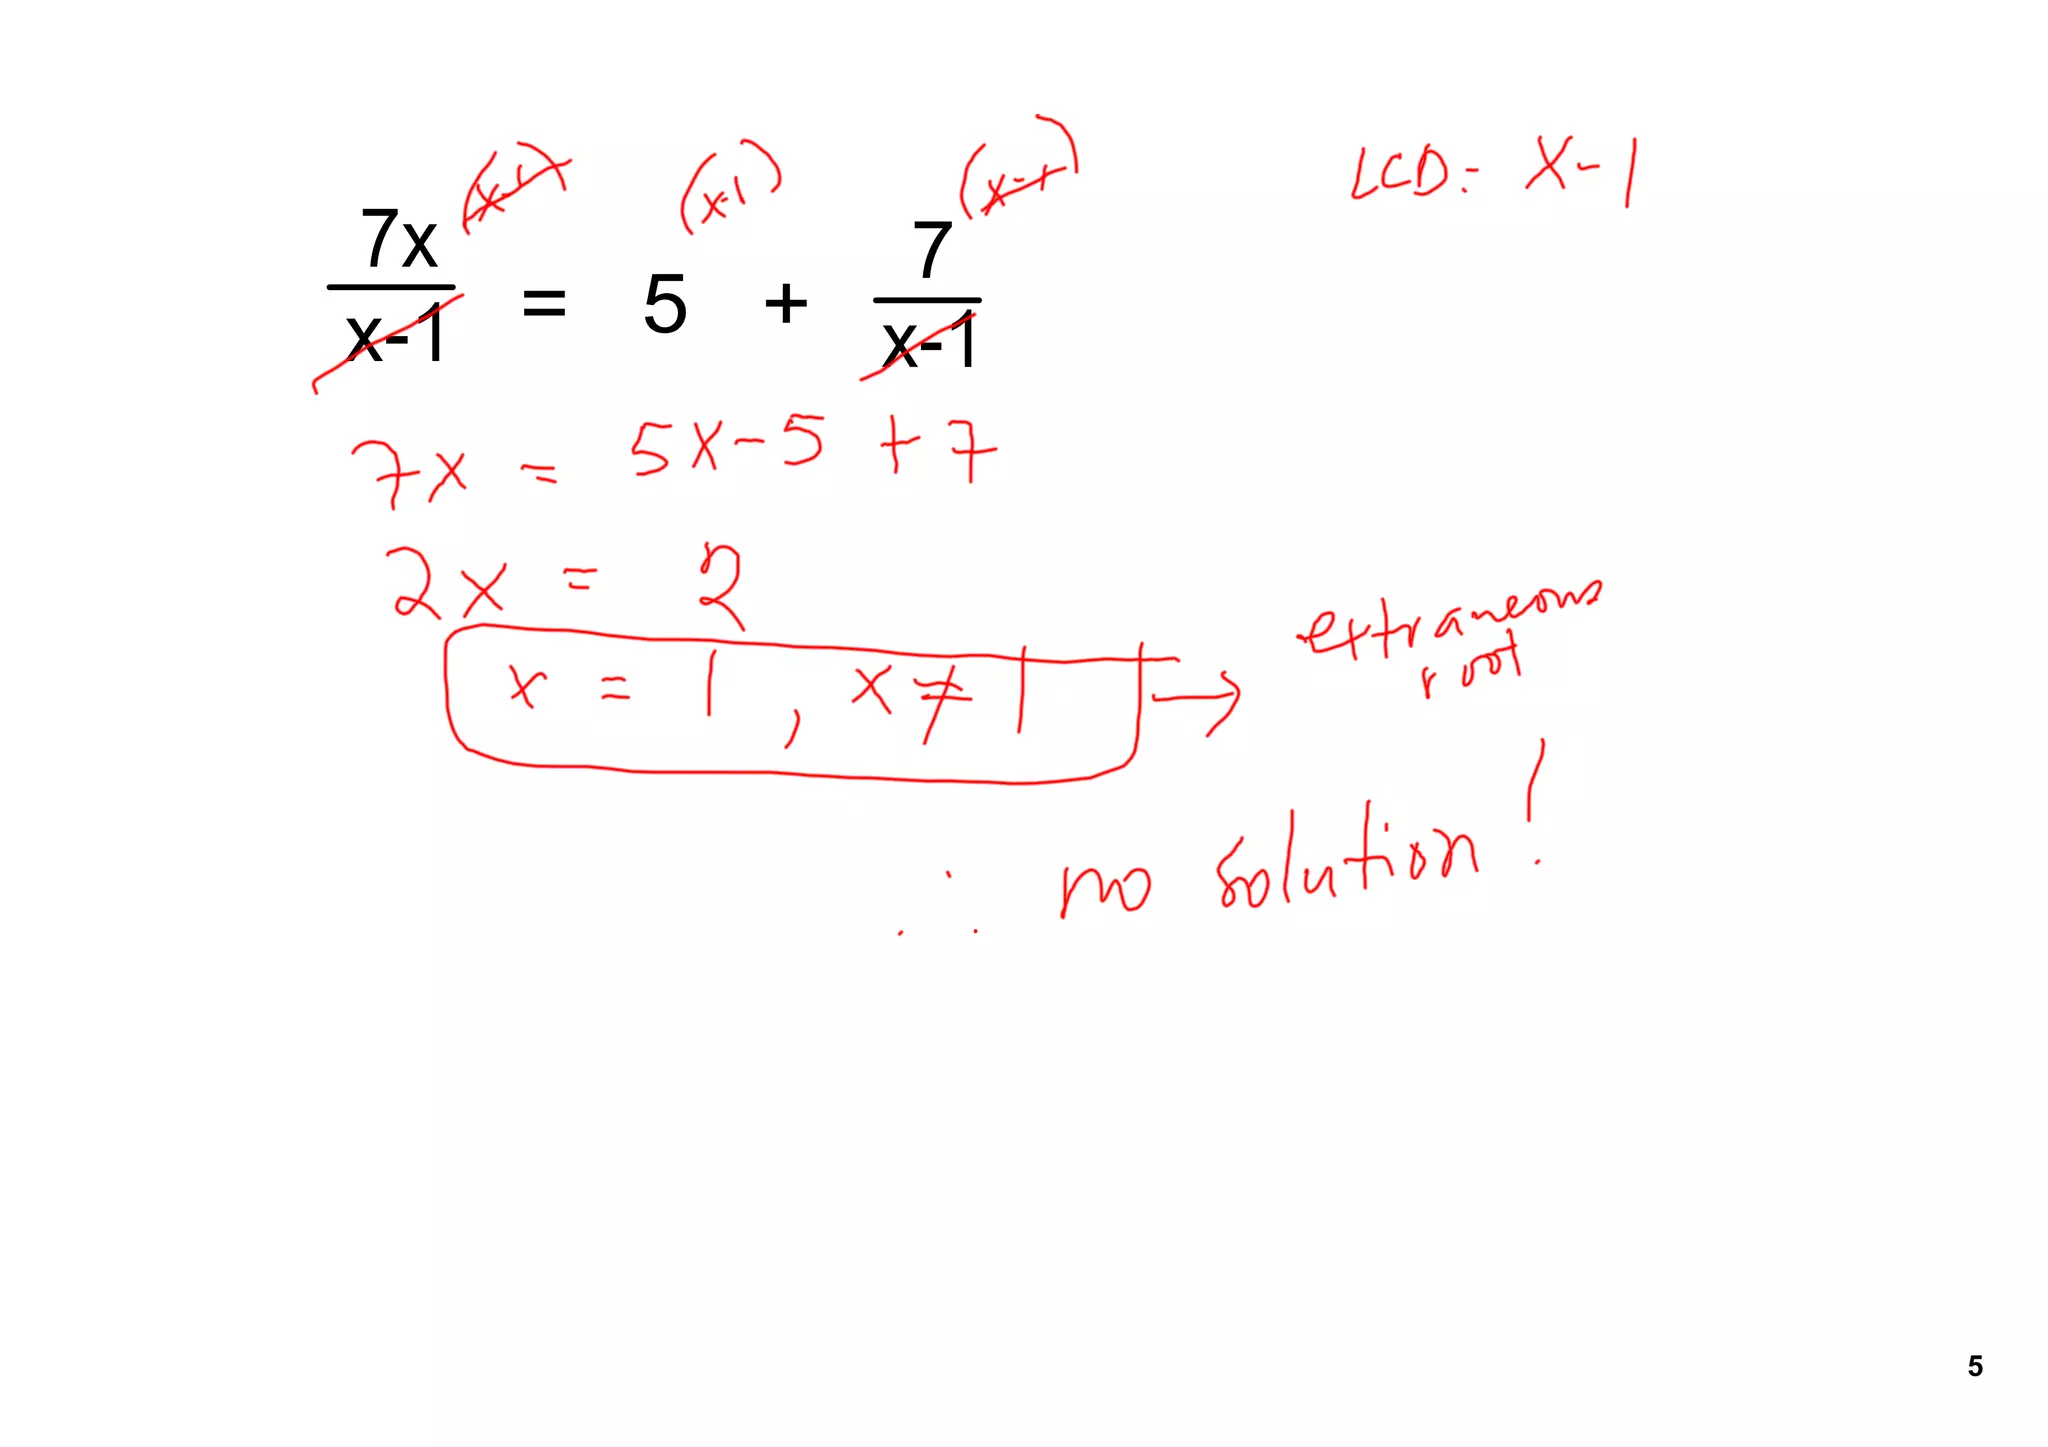 (x-1) (x-1) (x-1) LCD: x-1
7x/x-1 = 5 + 7/x-1
7x = 5x-5+7
2x = 2
x = 1, x≠1 → extraneous root
∴ no solution!
5